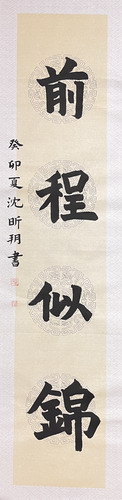 前程似錦
癸卯夏沈昕玥書